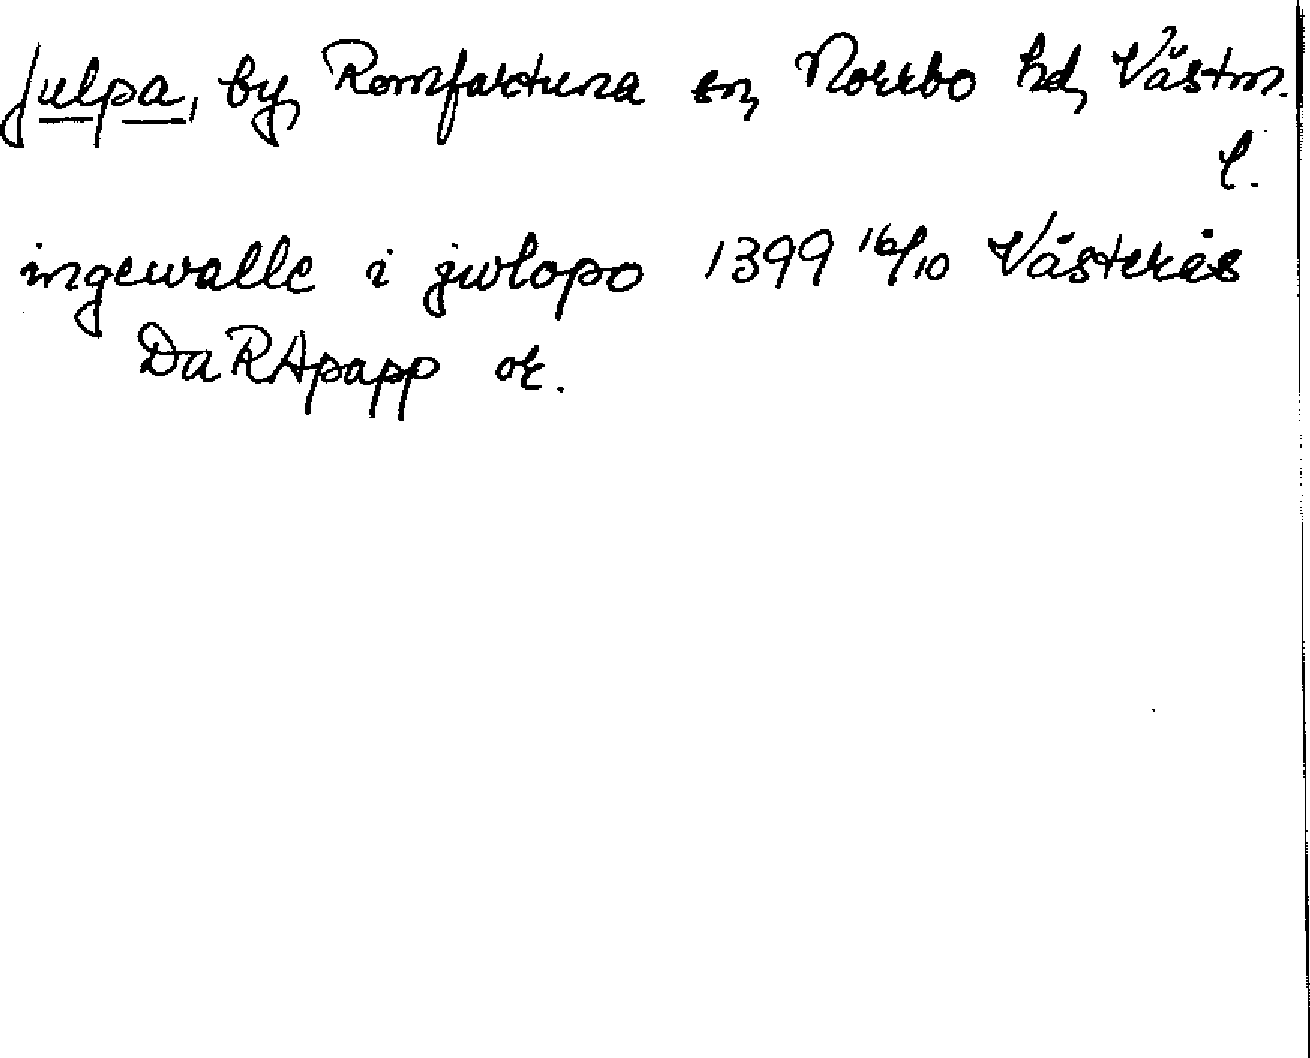 Julpa, by, Romfartuna sn, Norrbo hd, Västm.
l.
ingewalle i jwlopo 1399 16/10 Västerås
DaRApapp or.